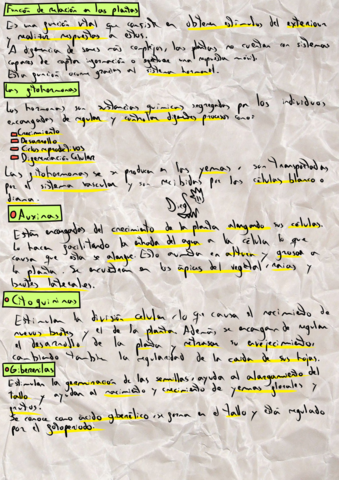 Función de relación en las plantas
Es una función vital que consiste en obtener estímulos del exterior
y realizar respuestas a estos.
A diferencia de seres más complejos, las plantas no cuentan con sistemas
capaces de captar información o realizar una respuesta móvil.
Esta función ocurre gracias al sistema hormonal.
Las fitohormonas
Las hormonas son sustancias químicas segregadas por los individuos
encargadas de regular y controlar diferentes procesos como:
Crecimiento
Desarrollo
Ciclos reproductivos
Diferenciación Celular
Las fitohormonas se producen en las yemas, son transportadas
por el sistema vascular y son recibidas por las células blanco o
diana.
Auxinas
Están encargadas del crecimiento de la planta alargando sus células.
Lo hacen facilitando la entrada del agua a la célula lo que
causa que ésta se alargue. Esto aumenta en altura y grosor a
la planta. Se encuentran en los ápices del vegetal, raíces y
brotes laterales.
Citoquininas
Estimulan la división celular, lo que causa el nacimiento de
nuevos brotes y de la planta. Además, se encargan de regular
el desarrollo de la planta y retrasar su envejecimiento,
cambiando también la regularidad de la caída de sus hojas.
Giberelinas
Estimulan la germinación de las semillas, ayuda al alargamiento del
tallo y ayudan al nacimiento y crecimiento de yemas florales y
frutos.
Se conoce como ácido giberélico, se forma en el tallo y está regulado
por el fotoperiodo.